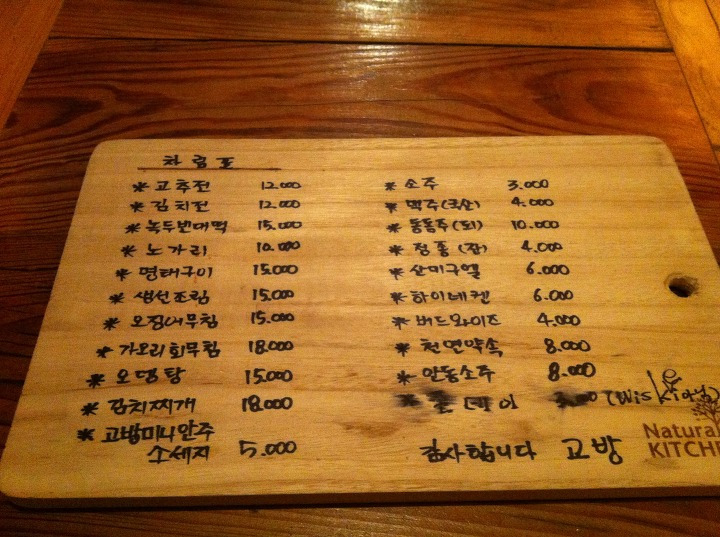 차림표
* 고추전 12.000
* 김치전 12.000
* 녹두빈대떡 15.000
* 노가리 10.000
* 명태구이 15.000
* 생선조림 15.000
* 오징어무침 15.000
* 가오리회무침 18.000
* 오뎅탕 15.000
* 김치찌개 18.000
* 고방미니안주
소세지 5.000
* 소주 3.000
* 맥주(국산) 4.000
* 동동주(되) 10.000
* 정종(잔) 4.000
* 산미구엘 6.000
* 하이네켄 6.000
* 버드와이즈 4.000
* 천년약속 8.000
* 안동소주 8.000
(Wis
감사합니다 고방
Natural
KITCHE